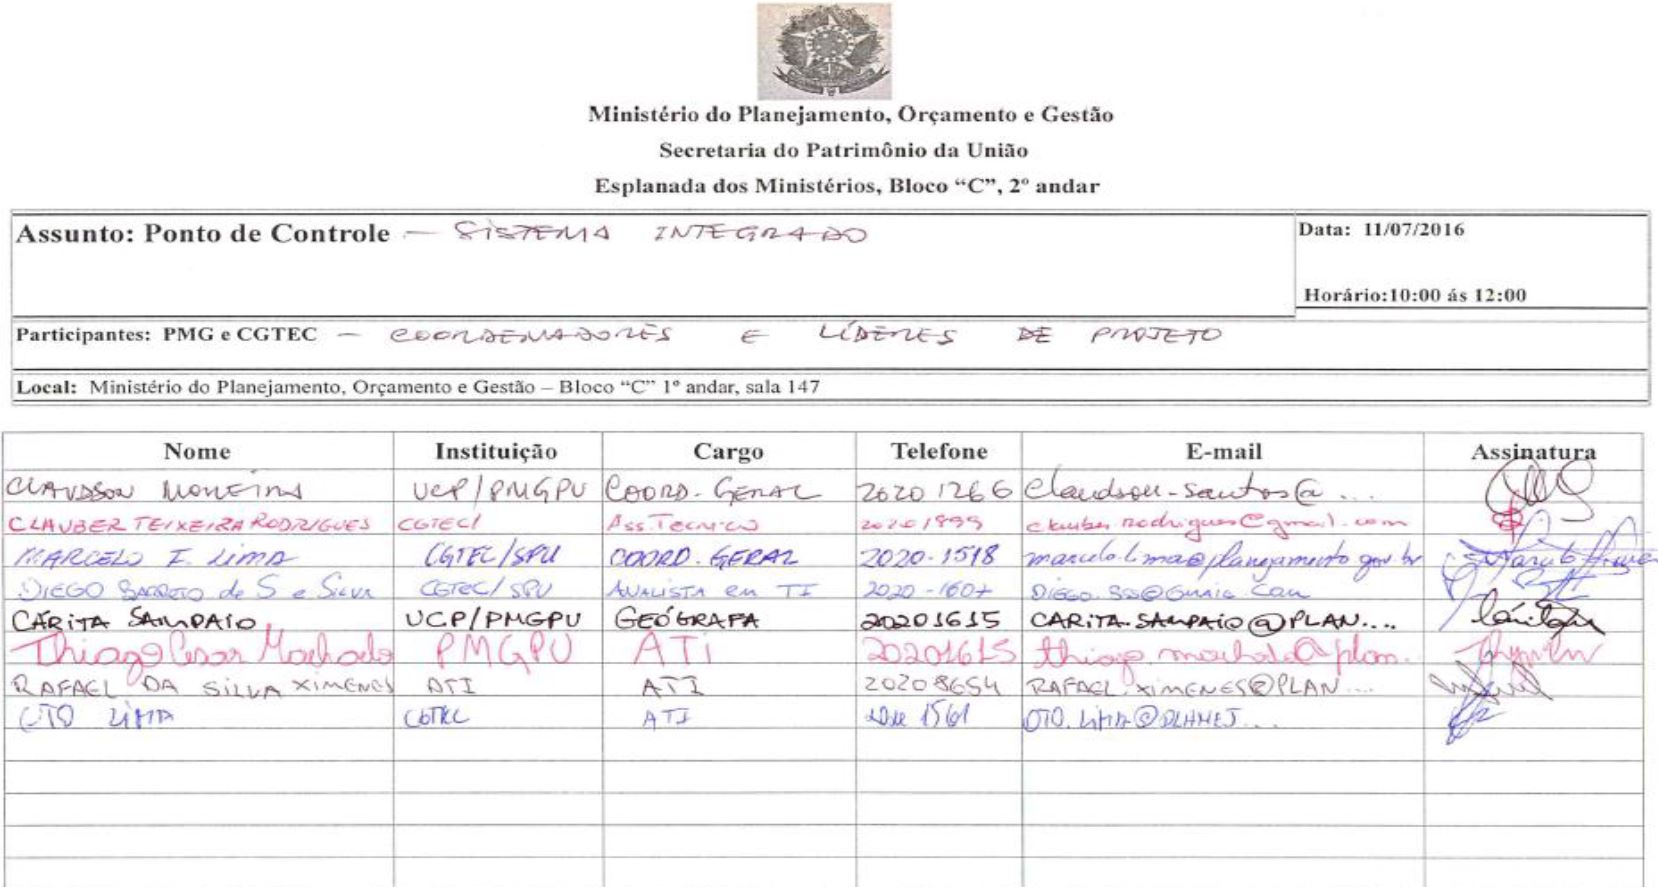 Ministério do Planejamento, Orçamento e Gestão
Secretaria do Patrimônio da União
Esplanada dos Ministérios, Bloco “C”, 2º andar
Assunto: Ponto de Controle – SISTEMA INTEGRADO
Data: 11/07/2016
Horário:10:00 ás 12:00
Participantes: PMG e CGTEC – COORDENADORES E LÍDERES DE PROJETO
Local: Ministério do Planejamento, Orçamento e Gestão – Bloco “C” 1º andar, sala 147
Nome Instituição Cargo Telefone E-mail Assinatura
CLAUDSON MOREIRA UCP/PMGPU COORD. GERAL 2020 1266 Claudson-Santos@...
CLAUBER TEIXEIRA RODRIGUES CGTEC/ Ass. Tecnico 2020 1999 clauber.rodrigues@gmail.com
MARCELO F. LIMA CGTEC/SPU COORD. GERAL 2020-1518 marcelo.lima@planejamento.gov.br
DIEGO BARRETO de S e Silva CGTEC/SPU ANALISTA em TI 2020-1607 DIEGO.SSS@GMAIL.COM
CÁRITA SAMPAIO UCP/PMGPU GEÓGRAFA 20201615 CARITA.SAMPAIO@PLAN....
Thiago Cesar Machado PMGPU ATI 20201615 thiago.machado@plan.
RAFAEL DA SILVA XIMENES ATI ATI 20208654 RAFAEL.XIMENES@PLAN...
OTO LIMA CGTEC ATI 1561 OTO.LIMA@PLANEJ...